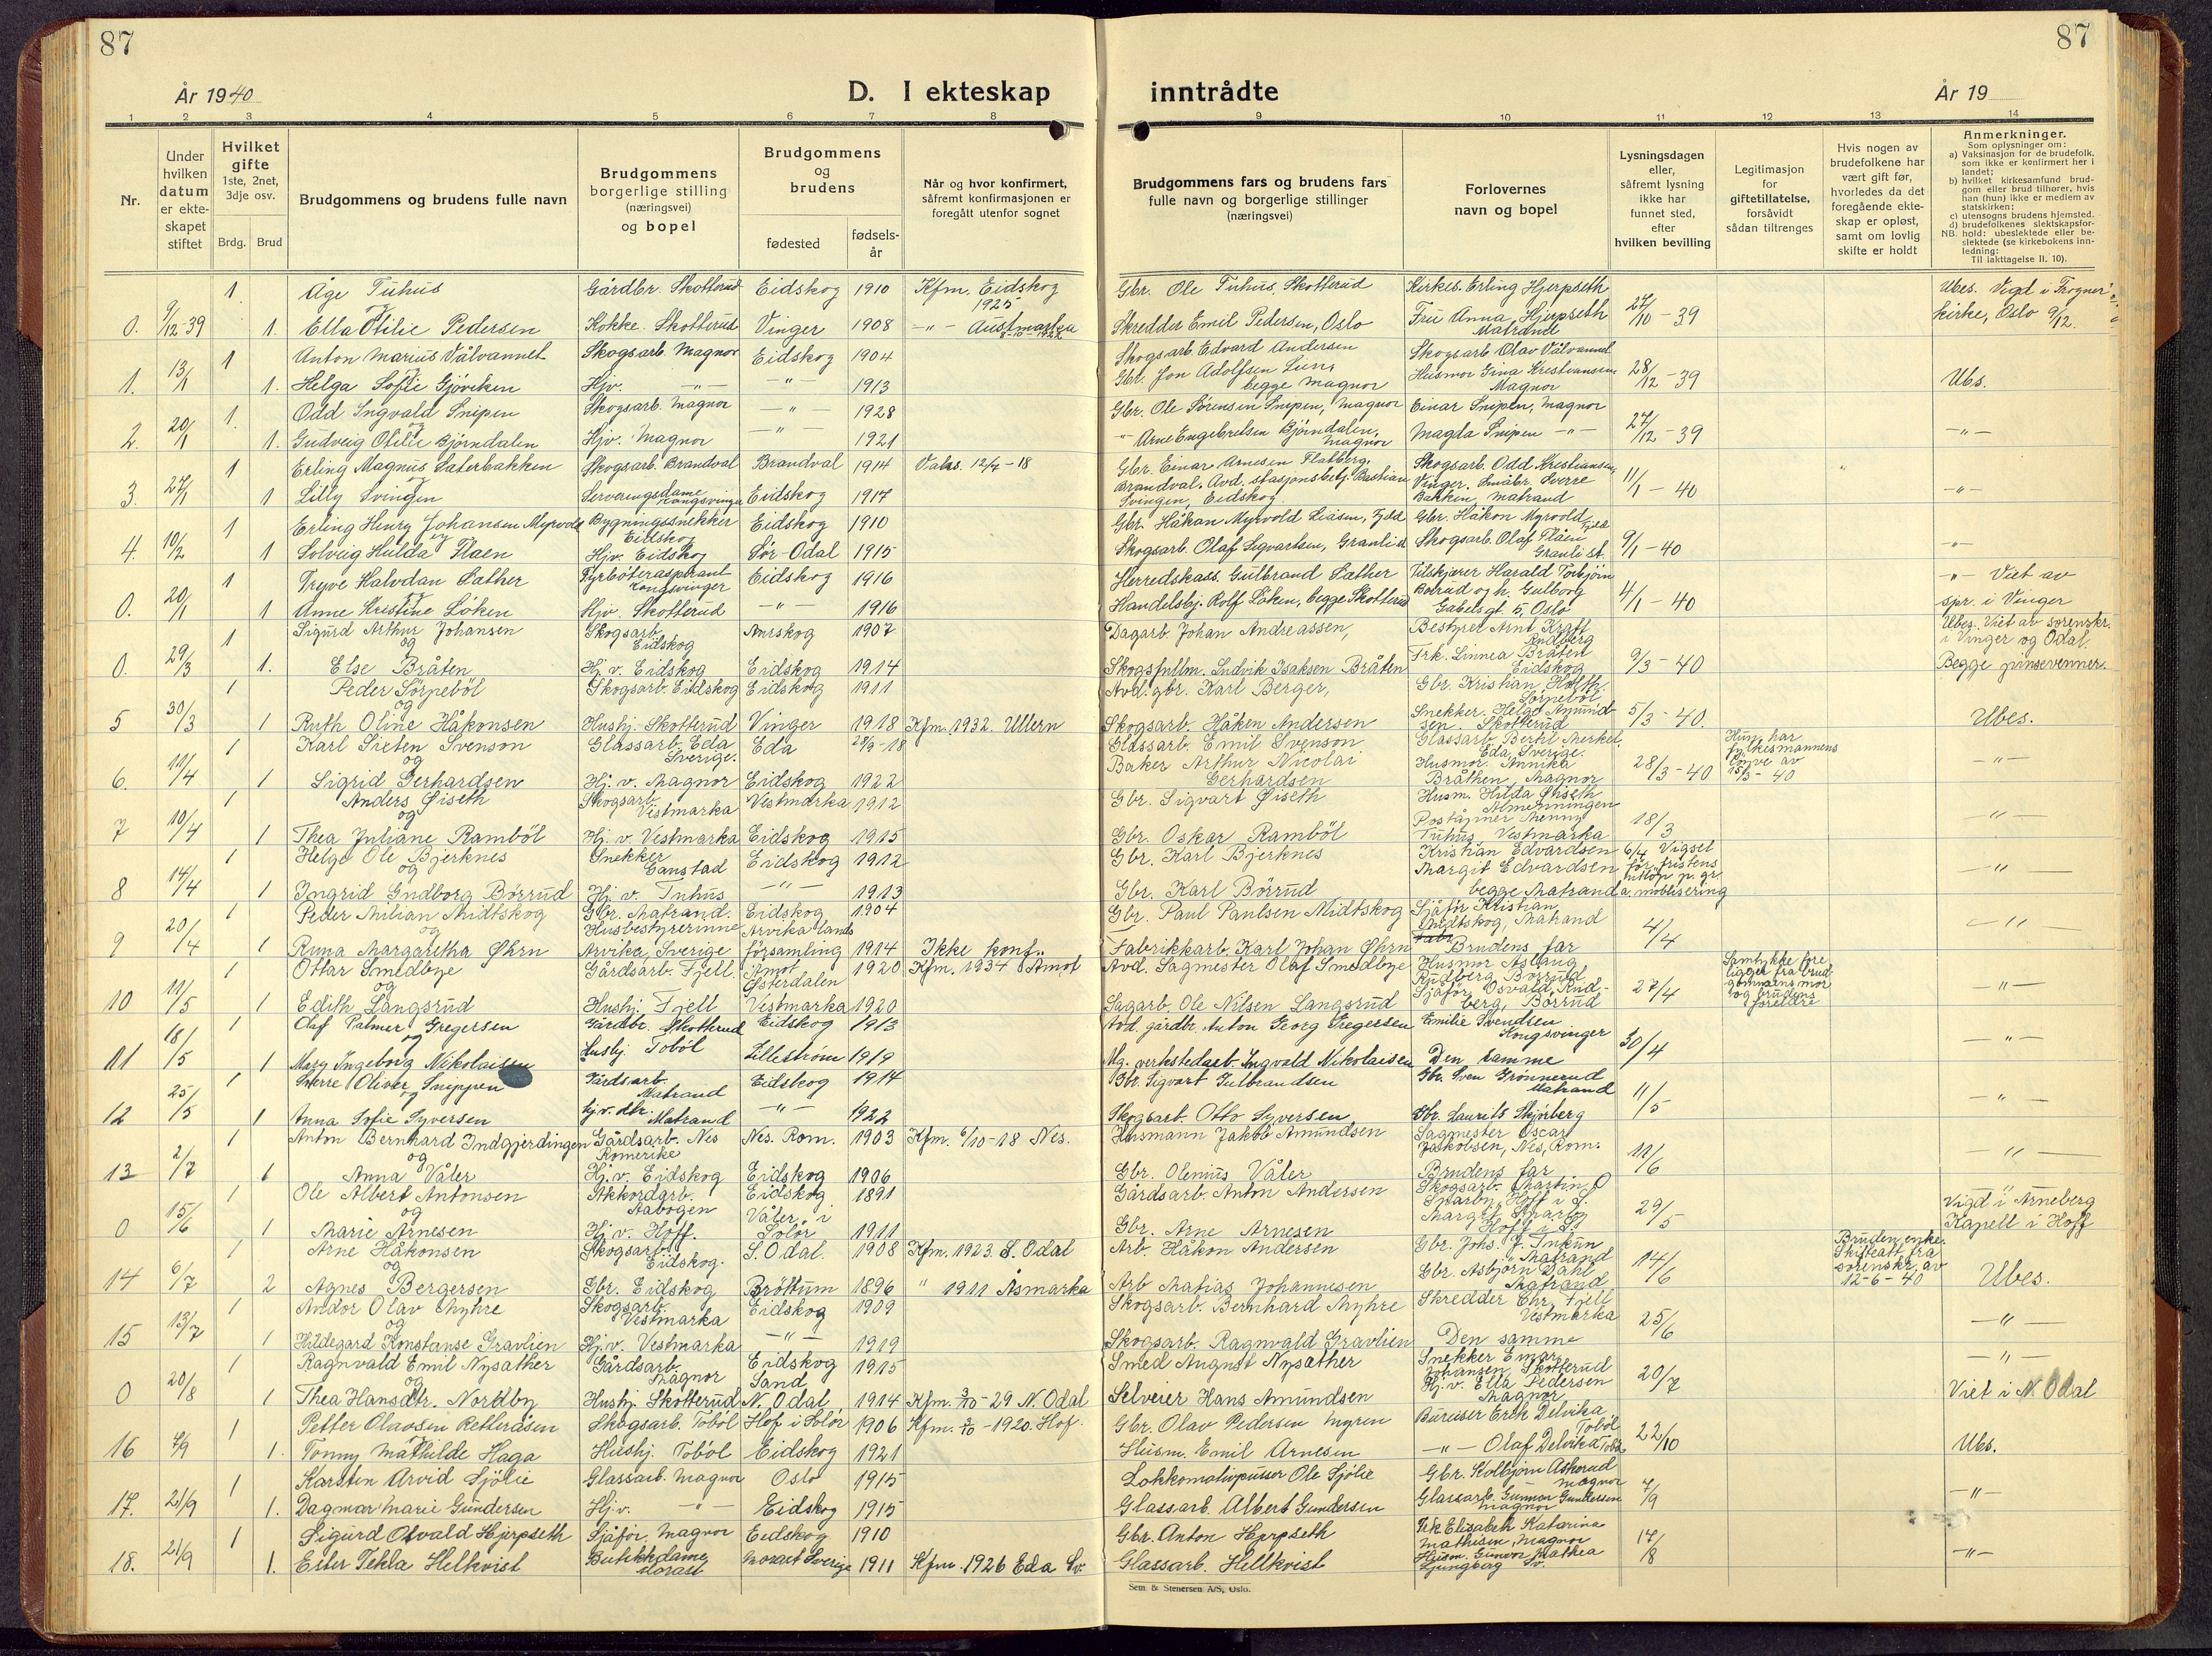 87
87
År 1940
D. I ekteskap
inntrådte
År 19
1 2 3 4 5 6 7 8 9 10 11 12 13 14
Nr.
Under hvilken datum er ekte-skapet stiftet
Hvilket gifte
1ste, 2net, 3dje osv.
Brdg. Brud
Brudgommens og brudens fulle navn
Brudgommens borgerlige stilling (næringsvei) og bopel
Brudgommens og brudens
fødested
fødsels-år
Når og hvor konfirmert, såfremt konfirmasjonen er foregått utenfor sognet
Brudgommens fars og brudens fars fulle navn og borgerlige stillinger (næringsvei)
Forlovernes navn og bopel
Lysningsdagen eller, såfremt lysning ikke har funnet sted, efter hvilken bevilling
Legitimasjon for giftetillatelse, forsåvidt sådan tiltrenges
Hvis nogen av brudefolkene har vært gift før, hvorledes da det foregående ekte-skap er opløst, samt om lovlig skifte er holdt
Anmerkninger.
Som oplysninger om:
a) Vaksinasjon for de brudefolk. som ikke er konfirmert her i landet;
b) hvilket kirkesamfund brud-gom eller brud tilhører, hvis han (hun) ikke er medlem av statskirken;
c) utensogns brudens hjemsted.
d) brudefolkenes slektskapsfor-
NB. hold: ubeslektede eller be-slektede (se kirkebokens inn-ledning:
Til iakttagelse II. 10).
1 Åge Tuhus Gårdbr. Skotterud Eidskog 1910 Kfm. Eidskog 1925 Gbr. Ole Tuhus, Skotterud Kirkes. Erling Hjerpseth Ubes. Vigd i Frogner
0. 9/12-39 1. og Ella Otilie Pedersen Kokke. Skotterud Vinger 1908 -"- Austmarka Skredder Emil Pedersen, Oslo Fru Anna Hjerpseth Matrand 27/10-39 kirke, Oslo 9/12.
1 Anton Marius Vålvannet Skogsarb. Magnor Eidskog 1904 Skogsarb. Edvard Andersen Skogsarb. Olav Vålvannet
1. 13/1 1. Helga Sofie Gjöviken Hjv. -"- -"- 1913 Gbr. Jon Adolfsen Lien, begge Magnor Husmor Gina Kristiansen, Magnor 28/12-39 Ubs.
1. Odd Ingvald Snipen Skogsarb. Magnor -"- 1928 Gbr. Ole Sørensen Snipen, Magnor Einar Snipen, Magnor
2. 20/1 1. og Gudveig Otilie Bjørndalen Hjv. Magnor -"- 1921 -"- Arne Engebretsen Bjørndalen, Magnor Magda Snipen -"- 27/12-39 -"-
1 Erling Magnus Saterbakken Skogsarb. Brandval Brandval 1914 Vaks. 12/7-18 Gbr. Einar Arnesen Flatberg, Brandval. Skogsarb. Odd Kristiansen, Vinger.
3. 27/1 1 og Lilly Svingen Serveringsdame Kongsvinger Eidskog 1917 Avd. stasjonsbetj. Bastian Svingen, Eidskog Småbr. Sverre Bakken, Matrand 11/1-40 -"-
1 Erling Henry Johansen Myrvold Bygningssnekker Eidskog Eidskog 1910 Gbr. Håkan Myrvold Liåsen, Fjeld Gbr. Håkon Myrvold, Fjeld
4. 10/2 1 og Solveig Hulda Flaen Hjv. Eidskog Sør-Odal 1915 Skogsarb. Olaf Sigvartsen, Granlid Skogsarb. Olaf Flåen Granli st. 9/1-40 -"-
1 Tryve Halvdan Sæther Fyrbøteraspirant Kongsvinger Eidskog 1916 Herredskass. Gulbrand Sæther Tilskjærer Harald Torbjörn -"- Viet av
0. 20/1 1 Anne Kristine Löken Hjv. Skotterud -"- 1916 Handelsbj. Rolf Löken, begge Skotterud Botrud og h. Gulborg Gabels gt. 5, Oslo 4/1-40 spr. i Vinger
1 Sigurd Arthur Johansen Skogsarb. Eidskog Aurskog 1907 Dagarb. Johan Andreassen, Bestyrer Arnt Kraft Rudberg Ubes. Viet av sorenskr. i Vinger og Odal.
0. 29/3 1. og Else Bråten Hj.v. Eidskog Eidskog 1914 Skogsfullm. Ludvik Isaksen Bråten Frk. Linnea Bråten Eidskog 9/3-40 Begge pinsevenner.
1 Peder Sörpeböl Skogsarb. Eidskog Eidskog 1911 Avd. gbr. Karl Berger, Gbr. Kristian Holth. Sörpeböl
5 30/3 1 og Ruth Oline Håkonsen Hushj. Skotterud Vinger 1918 Kfm. 1932. Ullern Skogsarb. Håken Andersen Snekker. Helge Amundsen. Skotterud 5/3-40. Ubes.
1 Karl Sixten Svenson Glassarb. Eda Sverige. Eda 28/9-18 Glassarb. Emil Svenson Glassarb. Bertil Merkel, Eda, Sverige. Hun har fylkesmannens
6. 11/4 1 og Sigrid Gerhardsen Hj.v. Magnor Eidskog 1922 Baker Arthur Nicolai Gerhardsen Husmor. Annika Bråthen, Magnor 28/3-40 15/3-40 -"-
1 Anders Øiseth Skogsarb. Vestmarka Vestmarka 1912 Gbr. Sigvart Øiseth Husm. Hilda Øiseth Almenningen
7 10/4 1 og Thea Juliane Ramböl Hj.v. Vestmarka Eidskog 1915 Gbr. Oskar Ramböl Poståpner Menny Tuhus, Vestmarka 18/3 -"-
1 Helge Ole Bjerknes Snekker Gaustad Eidskog 1912 Gbr. Karl Bjerknes Kristian Edvardsen 6/4 Vigsel
8 14/4 1 og Ingrid Gudborg Börrud Hj.v. Tuhus -"- 1913 Gbr. Karl Börrud Margit Edvardsen begge Matrand før fristens utløp p. gr. a. mobilisering -"-
1 Peder Milian Midtskog Gbr. Matrand. Eidskog 1904 Gbr. Paul Paulsen Midtskog Sjåfør Kristian Midtskog, Matrand
9 20/4 1 og Runa Margaretha Øhrn Husbestyrerinne Arvika, Sverige Arvika lands församling 1914 Ikke konf. Fabrikkarb. Karl Johan Øhrn Brudens far 4/4 -"-
1 Ottar Smedbye Gårdsarb. Fjell Åmot Østerdalen 1920 Kfm. 1934 Åmot Avd. Sagmester Olaf Smedbye Husmor Aslaug Rudberg, Börrud Samtykke fore-ligger fra brud-gommens mor
10 11/5 1 og Edith Langsrud Hushj. Fjell Vestmarka 1920 Sagarb. Ole Nilsen Langsrud Sjåfør. Osvald Rud-berg, Börrud 27/4 og brudens foreldre -"-
1 Olaf Palmer Gregersen Gårdbr. Skotterud Eidskog 1913 Avd. gårdbr. Anton Georg Gregersen Emilie Svendsen Kongsvinger
11 18/5 1 og Mary Ingeborg Nikolaisen Hushj. Toböl Lillestrøm 1919 Mg. verkstedarb. Ingvald Nikolaisen Den samme 30/4 -"-
1 Sverre Oliver Sneppen Gårdsarb. Matrand Eidskog 1914 Gbr. Sigvart Gulbrandsen Gbr. Sven Grönnerud Matrand
12 25/5 1 og Anna Sofie Syversen hj.v. dtr. Matrand -"- 1922 Skogsarb. Otto Syversen Gbr. Laurits Skjörberg 11/5 -"-
1 Anton Bernhard Indgjerdingen Gårdsarb. Nes Romerike Nes. Rom. 1903 Kfm. 6/10-18 Nes. Husmann Jakob Amundsen Sagmester Oscar Jakobsen, Nes, Rom.
13 2/7 1 og Anna Våler Hj.v. Eidskog Eidskog 1906 Gbr. Olenius Våler Brudens far 11/6 -"-
1 Ole Albert Antonsen Akkordarb. Aabogen Eidskog 1891 Gårdsarb. Anton Andersen Skogsarb. Martin O Snarby, Hoff i S.
0 15/6 1 og Marie Arnesen Hj.v. Hoff. Våler i Solør 1911 Gbr. Arne Arnesen Margit Snarby Hoff i S. 29/5 Vigd i Arneberg Kapell i Hoff
1 Arne Håkonsen Skogsarb. Eidskog. S. Odal. 1908 Kfm. 1923. S. Odal Arb. Håkon Andersen Gbr. Johs. J. Tukun Matrand Bruden enke. Skifteatt. fra
14 6/7 2 og Agnes Bergersen Gbr. Eidskog Brøttum 1896 " 1911 Åsmarka Arb Matias Johannesen Gbr. Asbjørn Dahl Matrand 14/6 sorenskr. av 12-6-40 Ubes.
1 Andor Olav Myhre Skogsarb. Vestmarka Eidskog 1909 Skogsarb. Bernhard Myhre Skredder Chr. Fjell Vestmarka
15 13/7 1 og Hildegard Konstanse Gravlien Hj.v. Vestmarka -"- 1919 Skogsarb. Ragnvald Gravlien Den samme 25/6 -"-
1 Ragnvald Emil Nysæther Gårdsarb. Magnor Eidskog 1915 Smed August Nysæther Snekker Einar Johansen, Skotterud -"-
0 20/8 1 og Thea Hansdtr. Nordby Hushj. Skotterud Sand N. Odal 1914 Kfm. 3/10-29 N. Odal Selveier Hans Amundsen Hj.v. Ella Pedersen Magnor 20/7 Viet i N. Odal
1 Petter Olavsen Retteråsen Skogsarb. Toböl Hof i Solør 1906 Kfm. 3/10-1920. Hof. Gbr. Olav Pedersen Myren Büruser Erik Delvika. Toböl
16 4/9 1. Tonny Mathilde Haga Hushj. Toböl Eidskog 1921 Husm. Emil Arnesen -"- Olaf Delvika Toböl 22/10 Ubs.
1 Karsten Arvid Sjölie Glassarb. Magnor Oslo 1915 Lokkomotivpusser Ole Sjölie Gbr. Kolbjørn Askerud Magnor
17. 21/9 1. Dagmar Marie Gundersen Hj.v. -"- Eidskog 1915 Glassarb. Albert Gundersen Glassarb. Gunnar Gundersen Magnor 7/9 -"-
1 Sigurd Osvald Hjerpseth Sjåför, Magnor Eidskog 1910 Gbr. Anton Hjerpseth Frk Elisabeth Katarina Mathisen, Magnor
18. 21/9 1. Ester Tekla Hellkvist Butikkdame Morast Morast Sverige 1911 Kfm. 1926 Eda Sv. Glassarb. Hellkvist Husm. Gunvor Mathea Ljungberg Sv. 17/8 -"-
Sem & Stenersen A/S, Oslo.